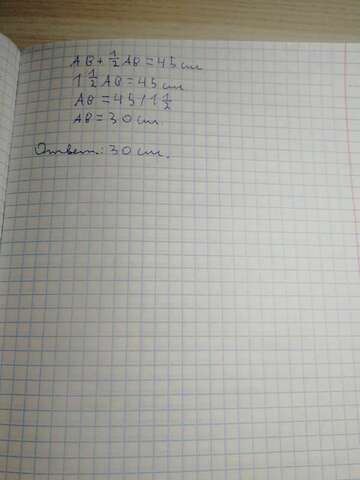 AB + 1/2 AB = 45 см
1 1/2 AB = 45 см
AB = 45 / 1 1/2
AB = 30 см.
Ответ: 30 см.